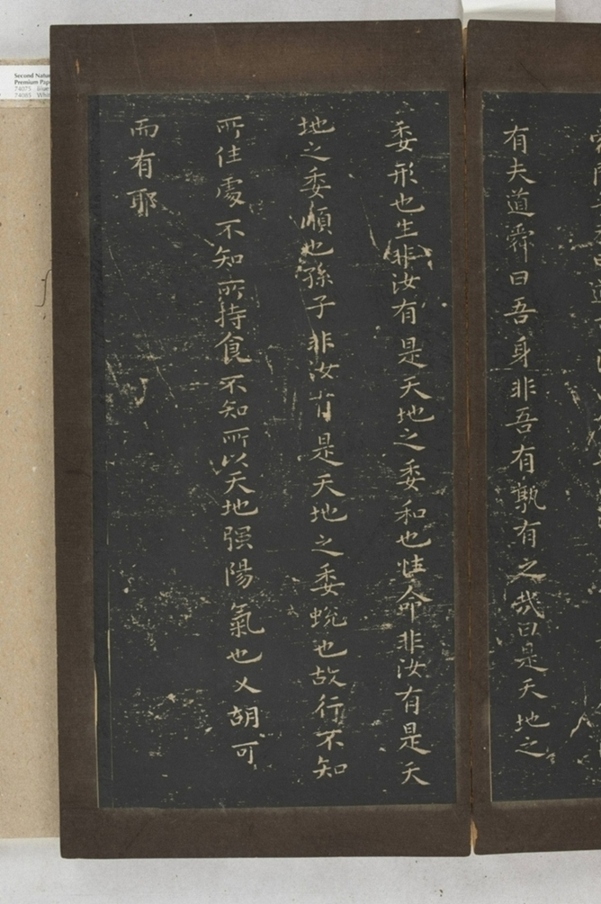 有夫道舜曰吾身非吾有孰有之哉曰是天地之
委形也生非汝有是天地之委和也性命非汝有是天
地之委順也孫子非汝有是天地之委蛻也故行不知
所住處不知所持食不知所以天地强陽氣也又胡可
而有耶
Second Natu
Premium Pap